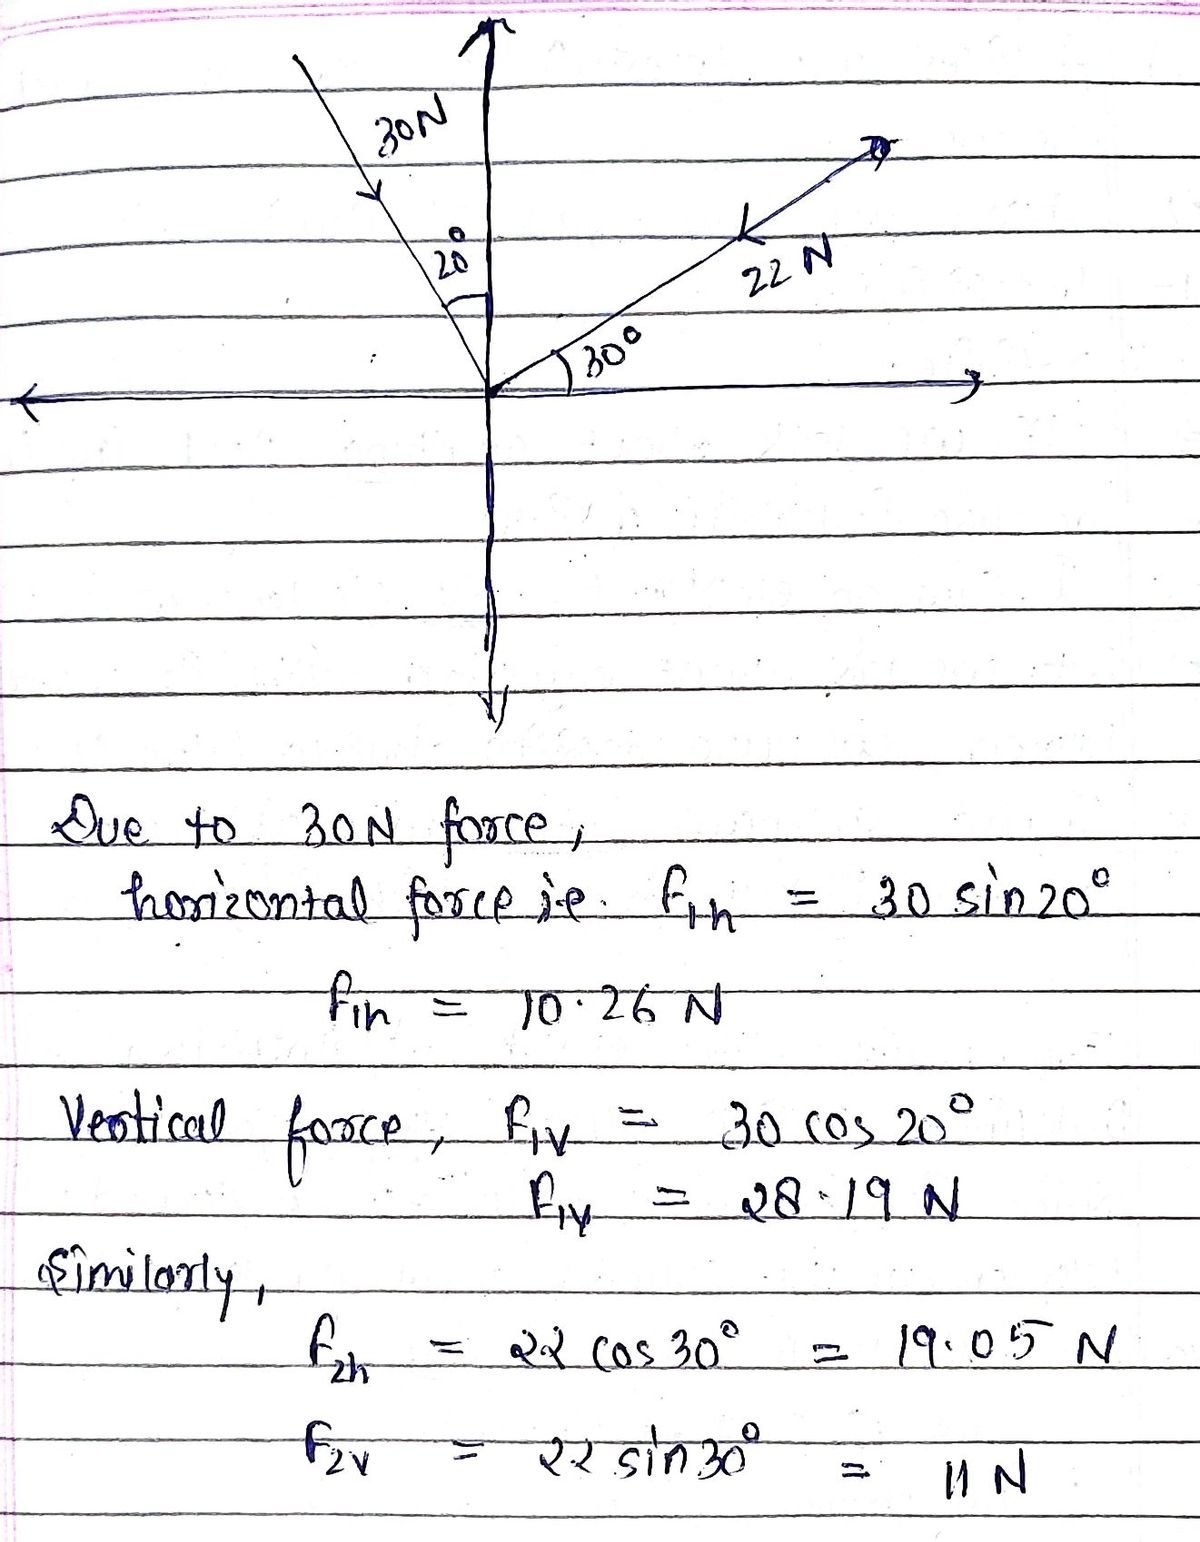 30N
20°
22 N
30°
Due to 30N force,
horizontal force i.e. F1h = 30 sin20°
F1h = 10.26 N
Vertical force, F1V = 30 cos 20°
F1V = 28.19 N
Similarly,
F2h = 22 cos 30° = 19.05 N
F2V = 22 sin 30° = 11 N